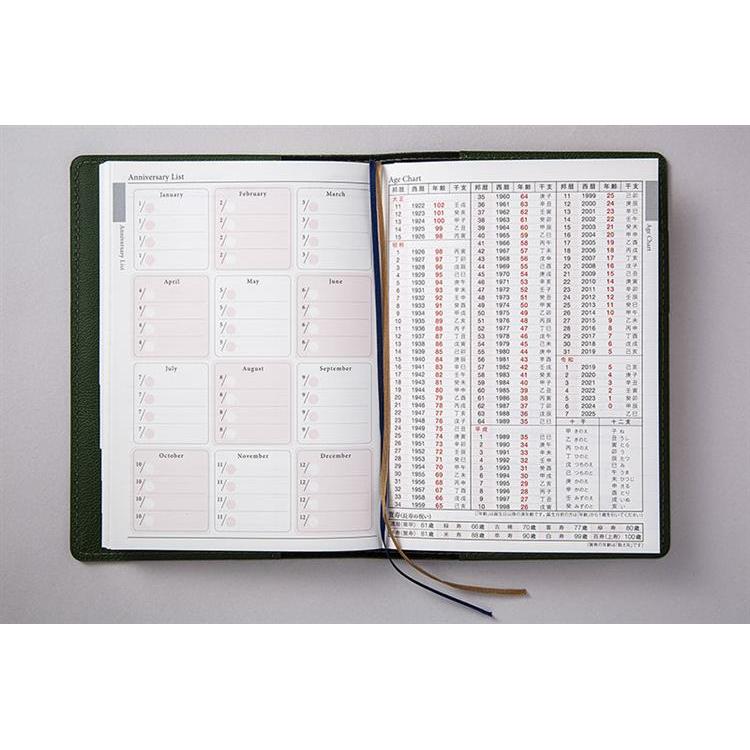 Anniversary List
Anniversary List
January
1/
1/
1/
1/
February
2/
2/
2/
2/
March
3/
3/
3/
3/
April
4/
4/
4/
4/
May
5/
5/
5/
5/
June
6/
6/
6/
6/
July
7/
7/
7/
7/
August
8/
8/
8/
8/
September
9/
9/
9/
9/
October
10/
10/
10/
10/
November
11/
11/
11/
11/
December
12/
12/
12/
12/
Age Chart
Age Chart
邦暦 西暦 年齢 干支
大正
11 1922 102 壬戌
12 1923 101 癸亥
13 1924 100 甲子
14 1925 99 乙丑
15 1926 98 丙寅
昭和
1 1926 98 丙寅
2 1927 97 丁卯
3 1928 96 戊辰
4 1929 95 己巳
5 1930 94 庚午
6 1931 93 辛未
7 1932 92 壬申
8 1933 91 癸酉
9 1934 90 甲戌
10 1935 89 乙亥
11 1936 88 丙子
12 1937 87 丁丑
13 1938 86 戊寅
14 1939 85 己卯
15 1940 84 庚辰
16 1941 83 辛巳
17 1942 82 壬午
18 1943 81 癸未
19 1944 80 甲申
20 1945 79 乙酉
21 1946 78 丙戌
22 1947 77 丁亥
23 1948 76 戊子
24 1949 75 己丑
25 1950 74 庚寅
26 1951 73 辛卯
27 1952 72 壬辰
28 1953 71 癸巳
29 1954 70 甲午
30 1955 69 乙未
31 1956 68 丙申
32 1957 67 丁酉
33 1958 66 戊戌
34 1959 65 己亥
邦暦 西暦 年齢 干支
35 1960 64 庚子
36 1961 63 辛丑
37 1962 62 壬寅
38 1963 61 癸卯
39 1964 60 甲辰
40 1965 59 乙巳
41 1966 58 丙午
42 1967 57 丁未
43 1968 56 戊申
44 1969 55 己酉
45 1970 54 庚戌
46 1971 53 辛亥
47 1972 52 壬子
48 1973 51 癸丑
49 1974 50 甲寅
50 1975 49 乙卯
51 1976 48 丙辰
52 1977 47 丁巳
53 1978 46 戊午
54 1979 45 己未
55 1980 44 庚申
56 1981 43 辛酉
57 1982 42 壬戌
58 1983 41 癸亥
59 1984 40 甲子
60 1985 39 乙丑
61 1986 38 丙寅
62 1987 37 丁卯
63 1988 36 戊辰
64 1989 35 己巳
平成
1 1989 35 己巳
2 1990 34 庚午
3 1991 33 辛未
4 1992 32 壬申
5 1993 31 癸酉
6 1994 30 甲戌
7 1995 29 乙亥
8 1996 28 丙子
9 1997 27 丁丑
10 1998 26 戊寅
邦暦 西暦 年齢 干支
11 1999 25 己卯
12 2000 24 庚辰
13 2001 23 辛巳
14 2002 22 壬午
15 2003 21 癸未
16 2004 20 甲申
17 2005 19 乙酉
18 2006 18 丙戌
19 2007 17 丁亥
20 2008 16 戊子
21 2009 15 己丑
22 2010 14 庚寅
23 2011 13 辛卯
24 2012 12 壬辰
25 2013 11 癸巳
26 2014 10 甲午
27 2015 9 乙未
28 2016 8 丙申
29 2017 7 丁酉
30 2018 6 戊戌
31 2019 5 己亥
令和
1 2019 5 己亥
2 2020 4 庚子
3 2021 3 辛丑
4 2022 2 壬寅
5 2023 1 癸卯
6 2024 0 甲辰
7 2025 乙巳
十干
甲 きのえ
乙 きのと
丙 ひのえ
丁 ひのと
戊 つちのえ
己 つちのと
庚 かのえ
辛 かのと
壬 みずのえ
癸 みずのと
十二支
子 ね
丑 うし
寅 とら
卯 う
辰 たつ
巳 み
午 うま
未 ひつじ
申 さる
酉 とり
戌 いぬ
亥 い
賀寿(長寿の祝い)
還暦(満年) 61歳 緑寿 66歳 古稀 70歳 喜寿 77歳 傘寿 80歳
半寿(盤寿) 81歳 米寿 88歳 卒寿 90歳 白寿 99歳 百寿(上寿) 100歳
(賀寿の年齢は「数え年」です)